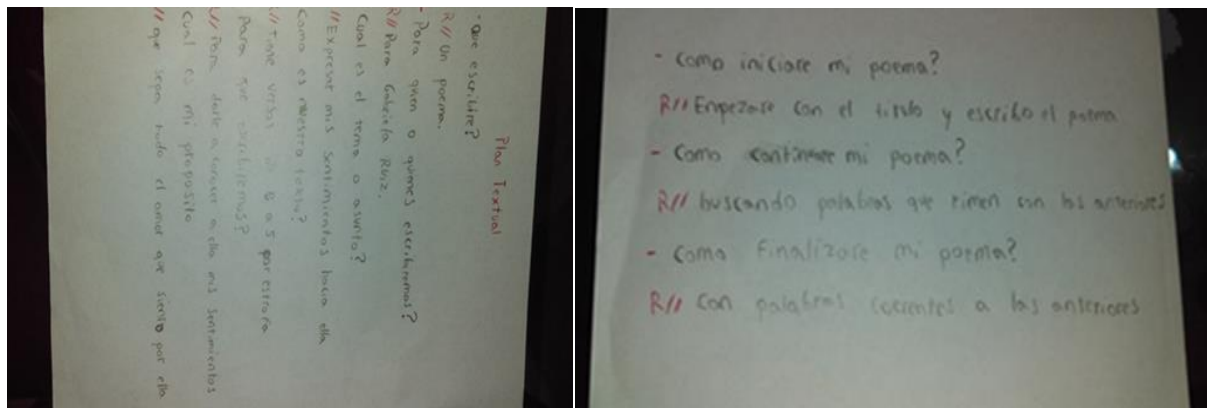 Plan Textual
- Que escribire?
R// Un poema.
- Para quien o quienes escribiremos?
R// Para Gabriela Ruiz.
Cual es el tema o asunto?
// Expresar mis sentimientos hacia ella
Como es nuestro texto?
R// Tiene versos 4 a 5 por estrofa
Para que escribiremos?
R// Para darle a conocer a ella mis sentimientos
Cual es mi proposito
// que sepa todo el amor que siento por ella
- Como iniciare mi poema?
R// Empezare con el titulo y escribo el poema
- Como continuare mi poema?
R// buscando palabras que rimen con las anteriores
- Como finalizare mi poema?
R// Con palabras coerentes a las anteriores